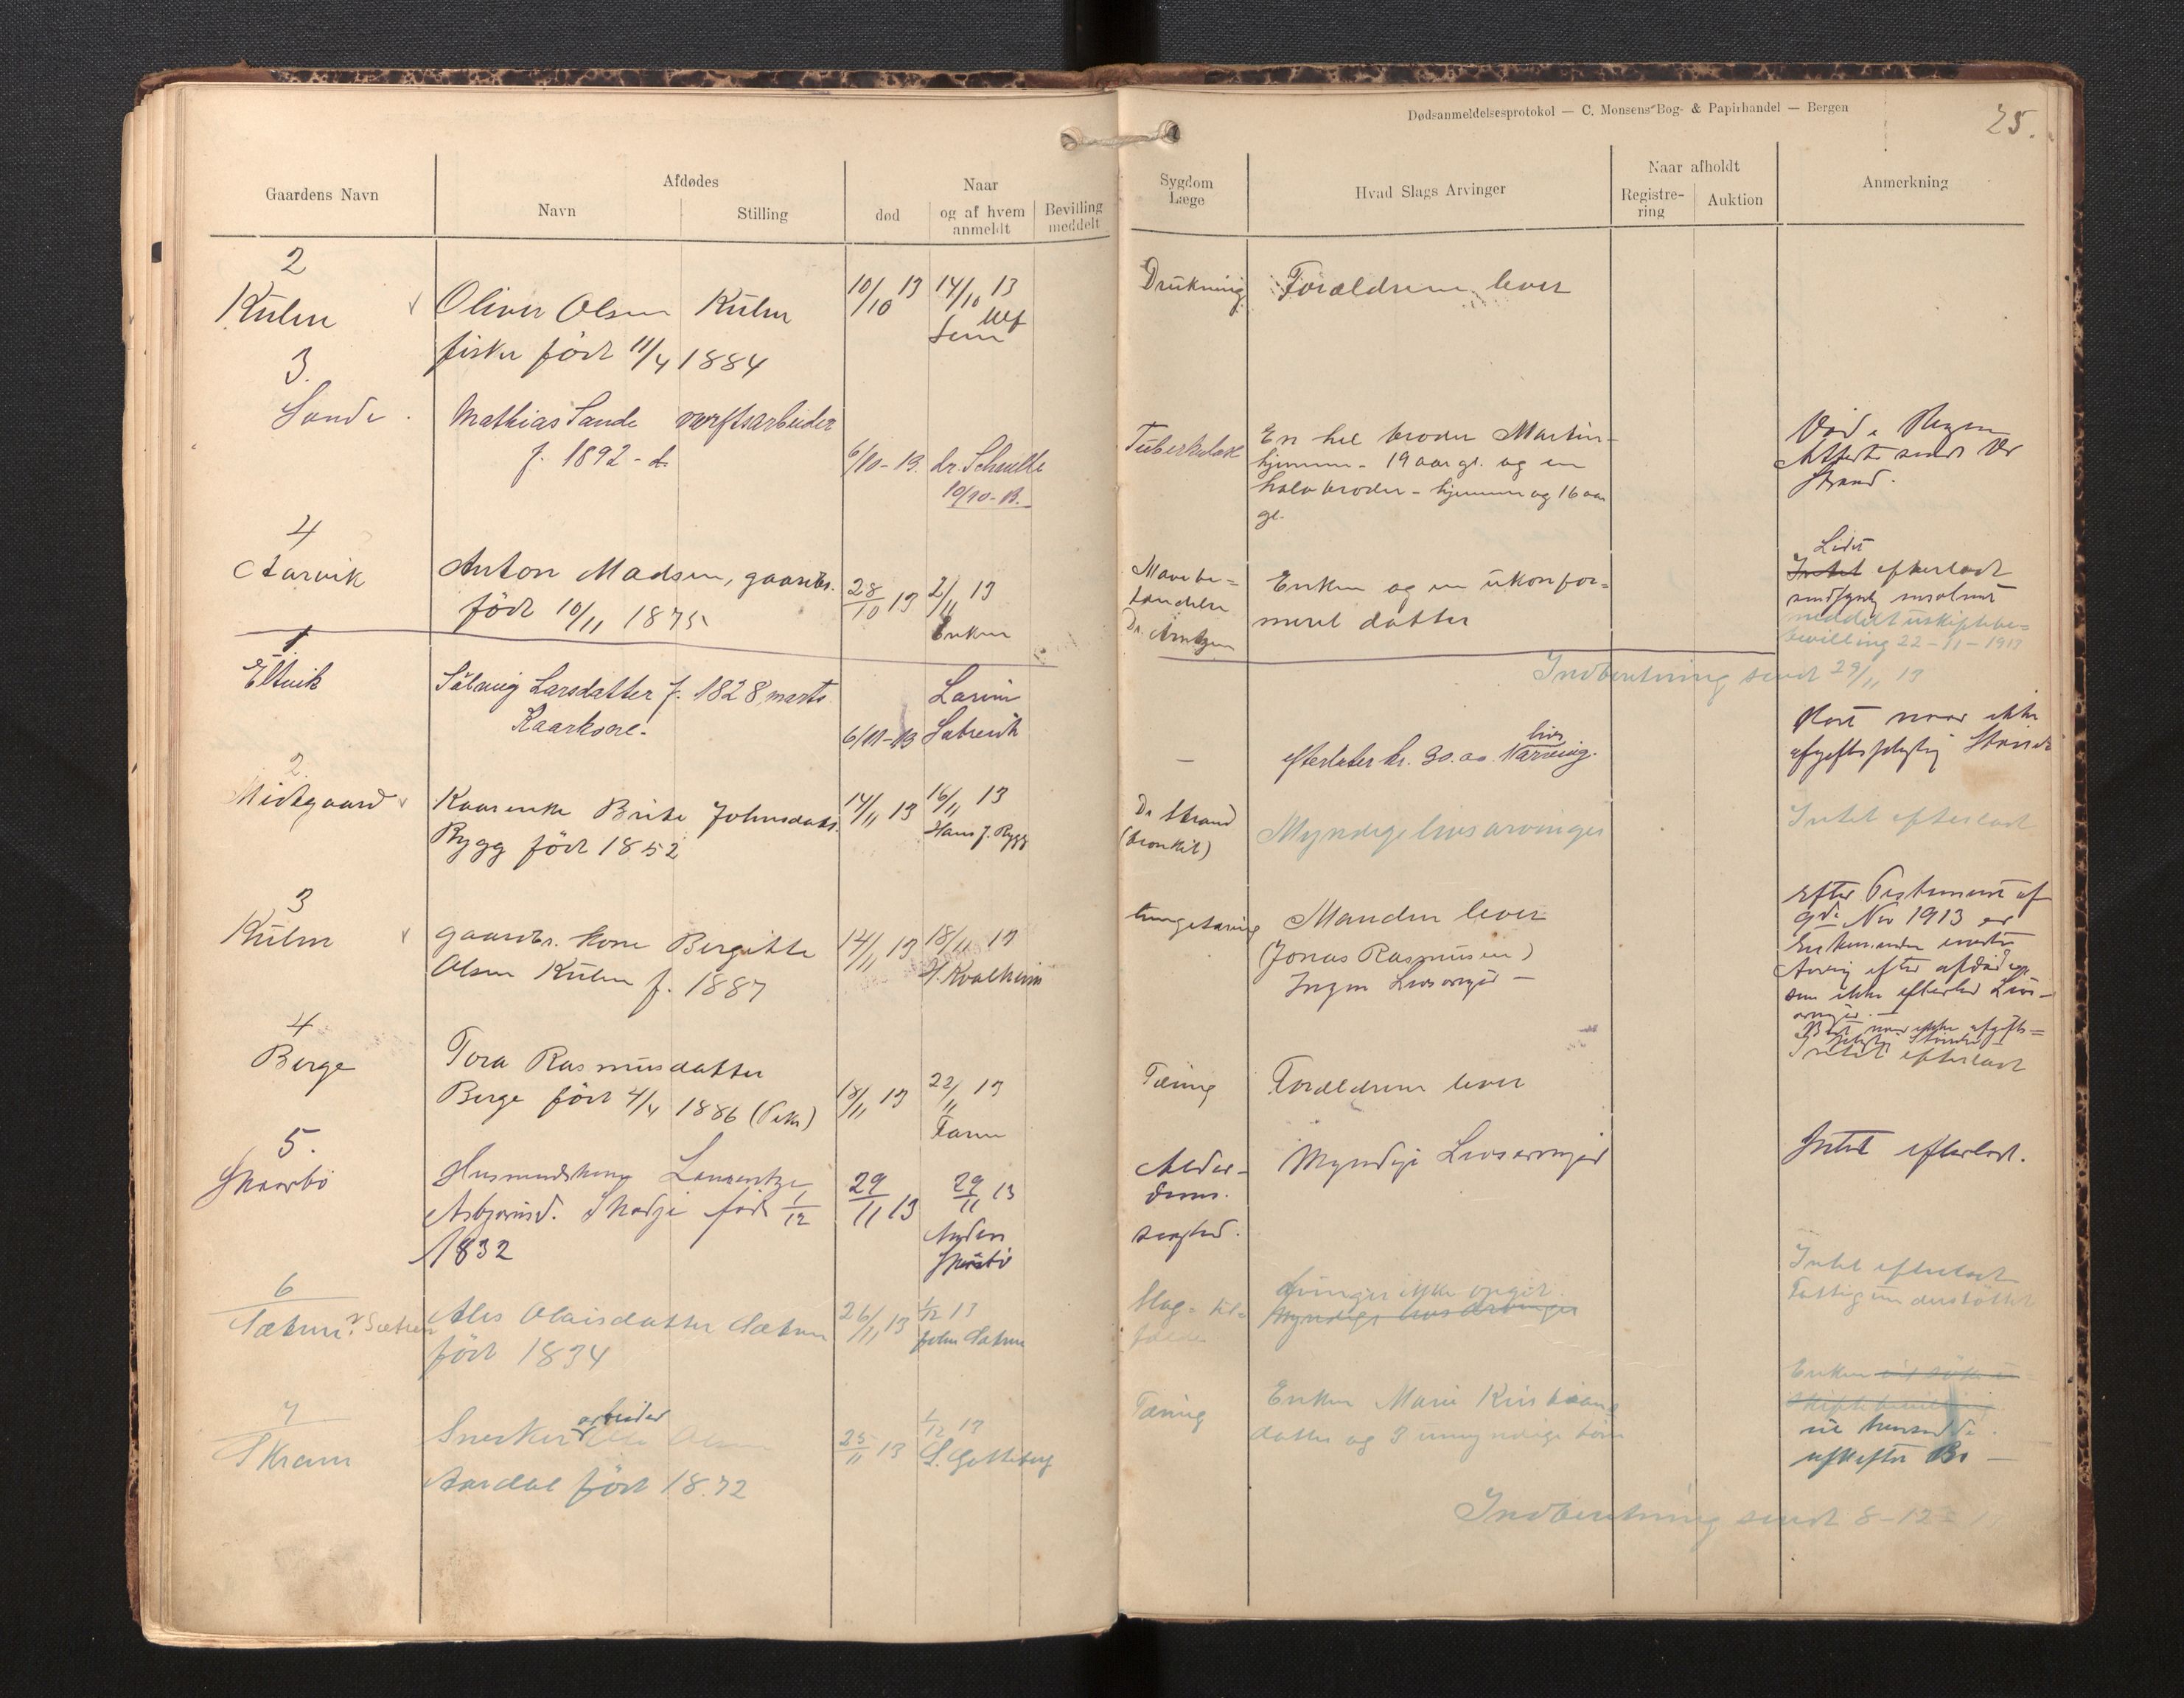 Dødsanmeldelsesprotokol — C. Monsens Bog- & Papirhandel — Bergen
25.
Gaardens Navn
Afdødes
Navn
Stilling
død
Naar
og af hvem
anmeldt
Bevilling
meddelt
Sygdom
Læge
Hvad Slags Arvinger
Naar afholdt
Registre-
ring
Auktion
Anmerkning
2
Kulm
Oliver Olsen Kulm
fisker født 11/4 1884
10/10 13
14/10 13
Drukning
Forældrene lever
3.
Sande
Mathias Sande verftsarbeider
f. 1892 - d.
6/10-13.
dr. Schmille
10/10-13.
Tuberkulose
En hel broder Martin
hjemme - 19 aar gl. og en
halv broder - hjemme og 16 aar
gl.
Død i
sendt Dr
Strand.
4
Aarvik
Anton Madsen, gaardbr.
født 10/11 1875
28/10 13
2/11 13
Enken
Mavebe=
tændelse
Dr. Arntzen
Enken og en ukonfor=
meret datter
Lidet
Intet efterladt
meddelt uskiftebe=
bevilling 22-11-1913
Indberetning sendt 29/11 13
1.
Eltvik
Solveig Larsdatter f. 1828 marts
Kaarkone.
6/11-13
—
efterlater kr. 30.00.
livs
Narving.
ikke
afgiftspligtig
2.
Midtgaard
Kaarenke Brite Johnsdatt.
Rygg født 1852
14/11 13
16/11 13
Hans J. Rygg
Dr Strand
(bronkit)
Myndige livsarvinger
Intet efterladt
3
Kulm
gaardbr. kone Birgitte
Olsen Kulm f. 1887
14/11 13
18/11 13
H. Kvalheim
tungetæring
Manden lever
(Jonas Rasmusen)
Ingen Livsarvger —
Efter Testament af
9de Nov 1913 er
Enkemanden eneste
Arving efter afdøde
som ikke efterlod Livs-
arvger. —
ikke afgifts=
Intet efterladt
4
Berge
Tora Rasmusdatter
Berge født 4/4 1886 (Pike)
18/11 13
22/11 13
Faren
Tæring
Forældrene lever
5.
Skaarbø
Husmandskone Laurentze
Asbjørnsd. Skorge født 1/12
1832
29/11 13
29/11 13
Alder-
doms.
svaghed.
Myndige Livsarvinger
Intet efterladt.
6
Sætren
Sætren
Ales Olaisdatter Sætren
født 1834
26/11 13
1/12 13
John Sætren
Slag= til=
fælde
Arvinger ikke opgit.
Myndige livsarvinger
Intet efterladt
Fattigunderstøttet
7
Skram
arbeider
Snekker Olsen
Aardal født 1872
25/11 13
1/12 13
Tæring
Enken Marie Kristians
datter og 3 umyndige børn
Enken
Indberetning sendt 8-12-1